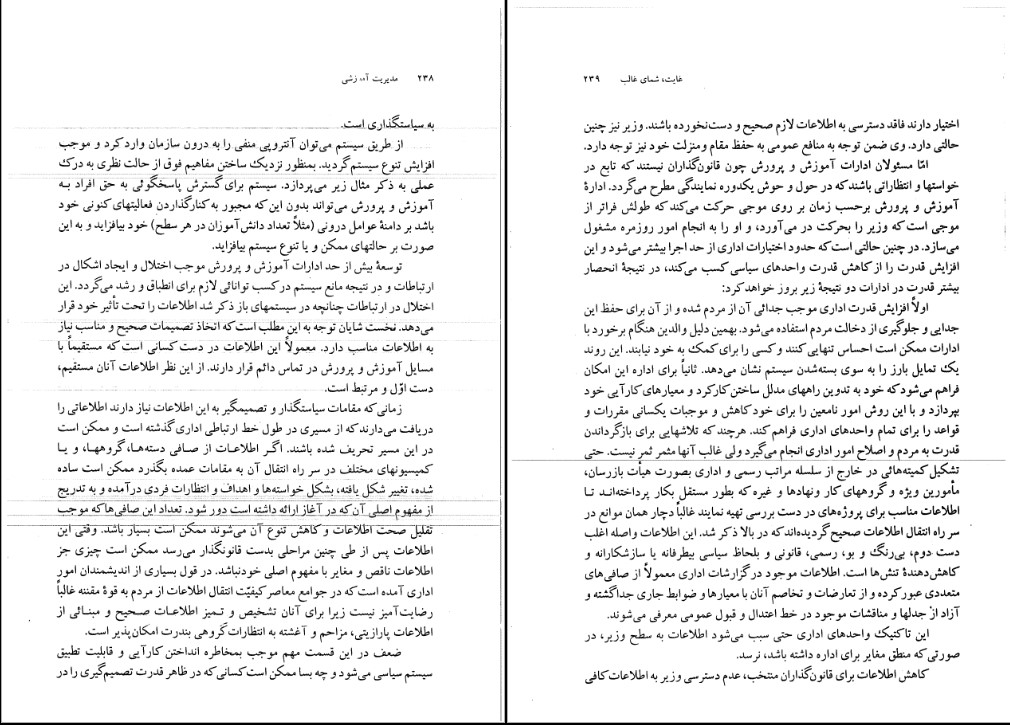 ۲۳۸ مدیریت آموزشی
به سیاستگذاری است.
از طریق سیستم می‌توان آنتروپی منفی را به درون سازمان وارد کرد و موجب
افزایش تنوع سیستم گردید. بمنظور نزدیک ساختن مفاهیم فوق از حالت نظری به درک
عملی به ذکر مثال زیر می‌پردازد. سیستم برای گسترش پاسخگوئی به حق افراد به
آموزش و پرورش می‌تواند بدون این که مجبور به کنارگذاردن فعالیتهای کنونی خود
باشد بر دامنهٔ عوامل درونی (مثلاً تعداد دانش‌آموزان در هر سطح) خود بیافزاید و به این
صورت بر حالتهای ممکن و یا تنوع سیستم بیافزاید.
توسعهٔ بیش از حد ادارات آموزش و پرورش موجب اختلال و ایجاد اشکال در
ارتباطات و در نتیجه مانع سیستم در کسب توانائی لازم برای انطباق و رشد می‌گردد. این
اختلال در ارتباطات چنانچه در سیستمهای باز ذکر شد اطلاعات را تحت تأثیر خود قرار
می‌دهد. نخست شایان توجه به این مطلب است که اتخاذ تصمیمات صحیح و مناسب نیاز
به اطلاعات مناسب دارد. معمولاً این اطلاعات در دست کسانی است که مستقیماً با
مسایل آموزش و پرورش در تماس دائم قرار دارند. از این نظر اطلاعات آنان مستقیم،
دست اوّل و مرتبط است.
زمانی که مقامات سیاستگذار و تصمیمگیر به این اطلاعات نیاز دارند اطلاعاتی را
دریافت می‌دارند که از مسیری در طول خط ارتباطی اداری گذشته است و ممکن است
در این مسیر تحریف شده باشند. اگر اطلاعات از صافی دسته‌ها، گروهها، و یا
کمیسیونهای مختلف در سر راه انتقال آن به مقامات عمده بگذرد ممکن است ساده
شده، تغییر شکل یافته، بشکل خواسته‌ها و اهداف و انتظارات فردی درآمده و به تدریج
از مفهوم اصلی آن که در آغاز ارائه داشته است دور شود. تعداد این صافی‌ها که موجب
تقلیل صحت اطلاعات و کاهش تنوع آن می‌شوند ممکن است بسیار باشد. وقتی این
اطلاعات پس از طی چنین مراحلی بدست قانونگذار می‌رسد ممکن است چیزی جز
اطلاعات ناقص و مغایر با مفهوم اصلی خودنباشد. در قول بسیاری از اندیشمندان امور
اداری آمده است که در جوامع معاصر کیفیّت انتقال اطلاعات از مردم به قوهٔ مقننه غالباً
رضایت‌آمیز نیست زیرا برای آنان تشخیص و تمیز اطلاعات صحیح و مبنائی از
اطلاعات پارازیتی، مزاحم و آغشته به انتظارات گروهی بندرت امکان‌پذیر است.
ضعف در این قسمت مهم موجب بمخاطره انداختن کارآیی و قابلیت تطبیق
سیستم سیاسی می‌شود و چه بسا ممکن است کسانی که در ظاهر قدرت تصمیم‌گیری را در
غایت، شمای غالب ۲۳۹
اختیار دارند فاقد دسترسی به اطلاعات لازم صحیح و دست‌نخورده باشند. وزیر نیز چنین
حالتی دارد. وی ضمن توجه به منافع عمومی به حفظ مقام ومنزلت خود نیز توجه دارد.
امّا مسئولان ادارات آموزش و پرورش چون قانون‌گذاران نیستند که تابع در
خواستها و انتظاراتی باشند که در حول و حوش یکدوره نمایندگی مطرح می‌گردد. ادارهٔ
آموزش و پرورش برحسب زمان بر روی موجی حرکت می‌کند که طولش فراتر از
موجی است که وزیر را بحرکت در می‌آورد، و او را به انجام امور روزمره مشغول
می‌سازد. در چنین حالتی است که حدود اختیارات اداری از حد اجرا بیشتر می‌شود و این
افزایش قدرت را از کاهش قدرت واحدهای سیاسی کسب می‌کند، در نتیجهٔ انحصار
بیشتر قدرت در ادارات دو نتیجهٔ زیر بروز خواهد کرد:
اولاً افزایش قدرت اداری موجب جدائی آن از مردم شده و از آن برای حفظ این
جدایی و جلوگیری از دخالت مردم استفاده می‌شود. بهمین دلیل والدین هنگام برخورد با
ادارات ممکن است احساس تنهایی کنند و کسی را برای کمک به خود نیابند. این روند
یک تمایل بارز را به سوی بسته‌شدن سیستم نشان می‌دهد. ثانیاً برای اداره این امکان
فراهم می‌شود که خود به تدوین راههای مدلل ساختن کارکرد و معیارهای کارآیی خود
بپردازد و با این روش امور نامعین را برای خود کاهش و موجبات یکسانی مقررات و
قواعد را برای تمام واحدهای اداری فراهم کند. هرچند که تلاشهایی برای بازگرداندن
قدرت به مردم و اصلاح امور اداری انجام می‌گیرد ولی غالب آنها مثمر ثمر نیست. حتی
تشکیل کمیته‌هائی در خارج از سلسله مراتب رسمی و اداری بصورت هیأت بازرسان،
مأمورین ویژه و گروههای کار ونهادها و غیره که بطور مستقل بکار پرداخته‌اند تا
اطلاعات مناسب برای پروژه‌های در دست بررسی تهیه نمایند غالباً دچار همان موانع در
سر راه انتقال اطلاعات صحیح گردیده‌اند که در بالا ذکر شد. این اطلاعات واصله اغلب
دست دوم، بی‌رنگ و بو، رسمی، قانونی و بلحاظ سیاسی بیطرفانه یا سازشکارانه و
کاهش‌دهندهٔ تنش‌ها است. اطلاعات موجود در گزارشات اداری معمولاً از صافی‌های
متعددی عبور کرده و از تعارضات و تخاصم آنان با معیارها و ضوابط جاری جداگشته و
آزاد از جدلها و مناقشات موجود در خط اعتدال و قبول عمومی معرفی می‌شوند.
این تاکتیک واحدهای اداری حتی سبب می‌شود اطلاعات به سطح وزیر، در
صورتی که منطق مغایر برای اداره داشته باشد، نرسد.
کاهش اطلاعات برای قانون‌گذاران منتخب، عدم دسترسی وزیر به اطلاعات کافی